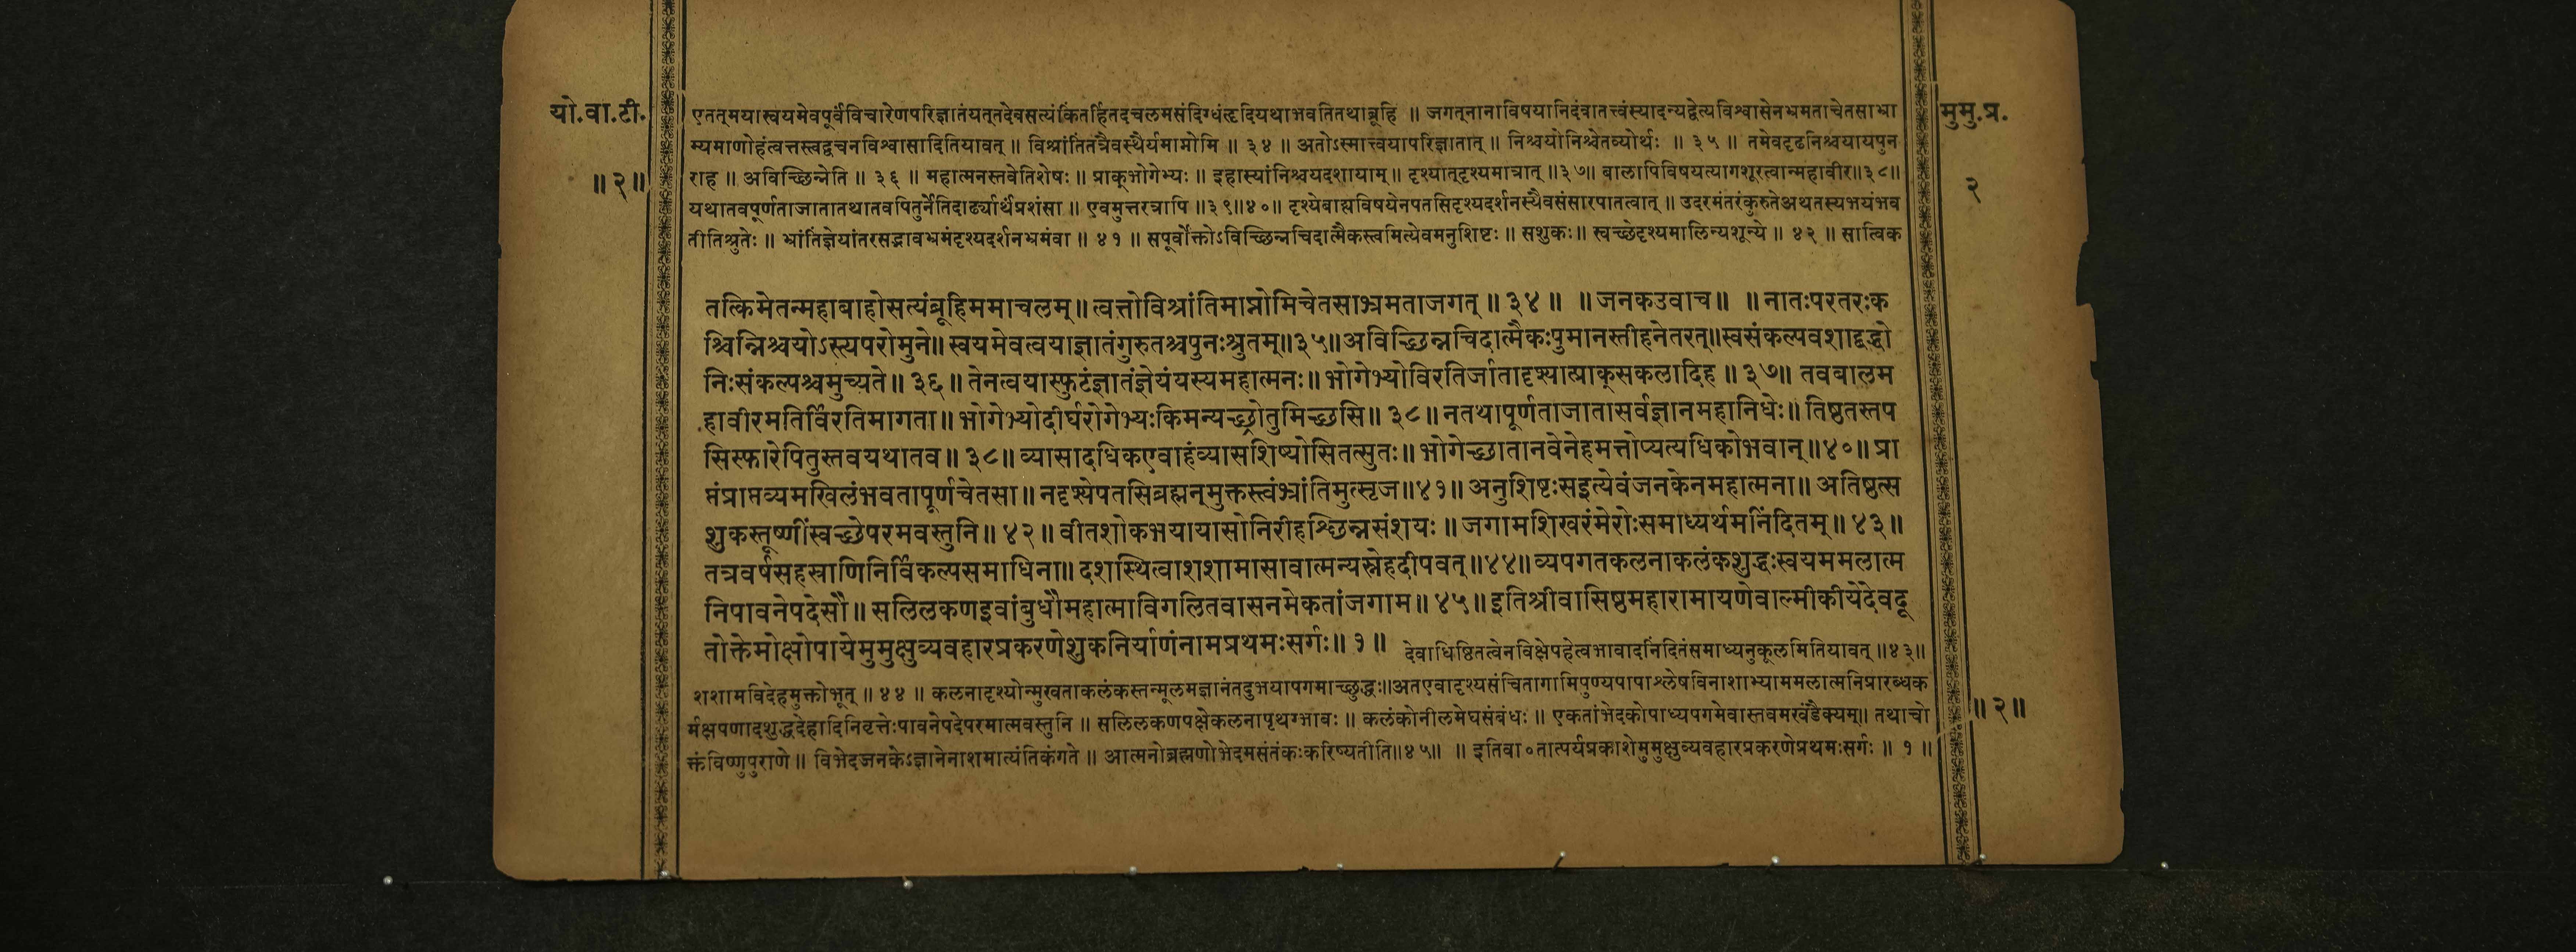 यो.वा.टी.
॥२॥
एतत्मयास्वयमेवपूर्वंविचारेणपरिज्ञातंयत्तदेवसत्यंकिंतर्हितदचलमसंदिग्धंहृदियथाभवतितथाब्रूहि ॥ जगत्नानाविषयानिदंवातत्त्वंस्यादन्यद्वेत्यविश्वासेनभ्रमताचेतसाभ्रा
म्यमाणोहंत्वत्तस्त्वद्वचनविश्वासादितियावत् ॥ विश्रांतितत्रैवस्थैर्यमाप्नोमि ॥ ३४ ॥ अतोऽस्मात्त्वयापरिज्ञातात् ॥ निश्चयोनिश्चेतव्योर्थः ॥ ३५ ॥ तमेवदृढनिश्चयायपुन
राह ॥ अविच्छिन्नेति ॥ ३६ ॥ महात्मनस्तवेतिशेषः ॥ प्राक्भोगेभ्यः ॥ इहास्यांनिश्चयदशायाम् ॥ दृश्यात्दृश्यमात्रात् ॥३७॥ बालापिविषयत्यागशूरत्वान्महावीर॥३८॥
यथातवपूर्णताजातातथातवपितुर्नेतिदार्ढ्यार्थंप्रशंसा ॥ एवमुत्तरत्रापि ॥३९॥४०॥ दृश्येबाह्यविषयेनपतसिदृश्यदर्शनस्यैवसंसारपातत्वात् ॥ उदरमंतरंकुरुतेअथतस्यभयंभव
तीतिश्रुतेः ॥ भ्रांतिंज्ञेयांतरसद्भावभ्रमंदृश्यदर्शनभ्रमंवा ॥ ४१ ॥ सपूर्वोक्तोऽविच्छिन्नचिदात्मैकस्त्वमित्येवमनुशिष्टः ॥ सशुकः॥ स्वच्छेदृश्यमालिन्यशून्ये ॥ ४२ ॥ सात्विक
तत्किमेतन्महाबाहोसत्यंब्रूहिममाचलम्॥ त्वत्तोविश्रांतिमाप्नोमिचेतसाभ्रमताजगत् ॥ ३४ ॥ ॥ जनकउवाच॥ ॥ नातःपरतरःक
श्चिन्निश्चयोऽस्त्यपरोमुने॥ स्वयमेवत्वयाज्ञातंगुरुतश्चपुनःश्रुतम्॥३५॥अविच्छिन्नचिदात्मैकःपुमानस्तीहनेतरत्॥स्वसंकल्पवशाद्बद्धो
निःसंकल्पश्चमुच्यते॥ ३६॥ तेनत्वयास्फुटंज्ञातंज्ञेयंयस्यमहात्मनः॥ भोगेभ्योविरतिर्जातादृश्यात्प्राक्सकलादिह ॥ ३७॥ तवबालम
हावीरमतिर्विरतिमागता॥ भोगेभ्योदीर्घरोगेभ्यःकिमन्यच्छ्रोतुमिच्छसि॥ ३८॥ नतथापूर्णताजातासर्वज्ञानमहानिधेः॥ तिष्ठतस्तप
सिस्फारेपितुस्तवयथातव॥ ३८॥ व्यासादधिकएवाहंव्यासशिष्योसितत्सुतः॥ भोगेच्छातानवेनेहमत्तोप्यत्यधिकोभवान्॥४०॥ प्रा
प्तंप्राप्तव्यमखिलंभवतापूर्णचेतसा॥ नदृश्येपतसिब्रह्मन्मुक्तस्त्वंभ्रांतिमुत्सृज॥४१॥ अनुशिष्टःसइत्येवंजनकेनमहात्मना॥ अतिष्ठत्स
शुकस्तूष्णींस्वच्छेपरमवस्तुनि॥ ४२॥ वीतशोकभयायासोनिरीहश्छिन्नसंशयः॥ जगामशिखरंमेरोःसमाध्यर्थमनिंदितम्॥ ४३॥
तत्रवर्षसहस्राणिनिर्विकल्पसमाधिना॥ दशस्थित्वाशशामासावात्मन्यस्नेहदीपवत्॥४४॥ व्यपगतकलनाकलंकशुद्धःस्वयममलात्म
निपावनेपदेसौ॥ सलिलकणइवांबुधौमहात्माविगलितवासनमेकतांजगाम॥ ४५॥ इतिश्रीवासिष्ठमहारामायणेवाल्मीकीयेदेवदू
तोक्तेमोक्षोपायेमुमुक्षुव्यवहारप्रकरणेशुकनिर्याणंनामप्रथमःसर्गः॥ १॥ देवाधिष्ठितत्वेनविक्षेपहेत्वभावादनिंदितंसमाध्यनुकूलमितियावत् ॥४३॥
शशामविदेहमुक्तोभूत् ॥ ४४ ॥ कलनादृश्योन्मुखताकलंकस्तन्मूलमज्ञानंतदुभयापगमाच्छुद्धः॥अतएवादृश्यसंचितागामिपुण्यपापाश्लेषविनाशाभ्याममलात्मनिप्रारब्धक
र्मक्षपणादशुद्धदेहादिनिवृत्तेःपावनेपदेपरमात्मवस्तुनि ॥ सलिलकणपक्षेकलनापृथग्भावः ॥ कलंकोनीलमेघसंबंधः ॥ एकतांभेदकोपाध्यपगमेवास्तवमखंडैक्यम्॥ तथाचो
क्तंविष्णुपुराणे ॥ विभेदजनकेऽज्ञानेनाशमात्यंतिकंगते ॥ आत्मनोब्रह्मणोभेदमसंतंकःकरिष्यतीति॥४५॥ ॥ इतिवा०तात्पर्यप्रकाशेमुमुक्षुव्यवहारप्रकरणेप्रथमःसर्गः ॥ १ ॥
मुमु.प्र.
२
॥२॥